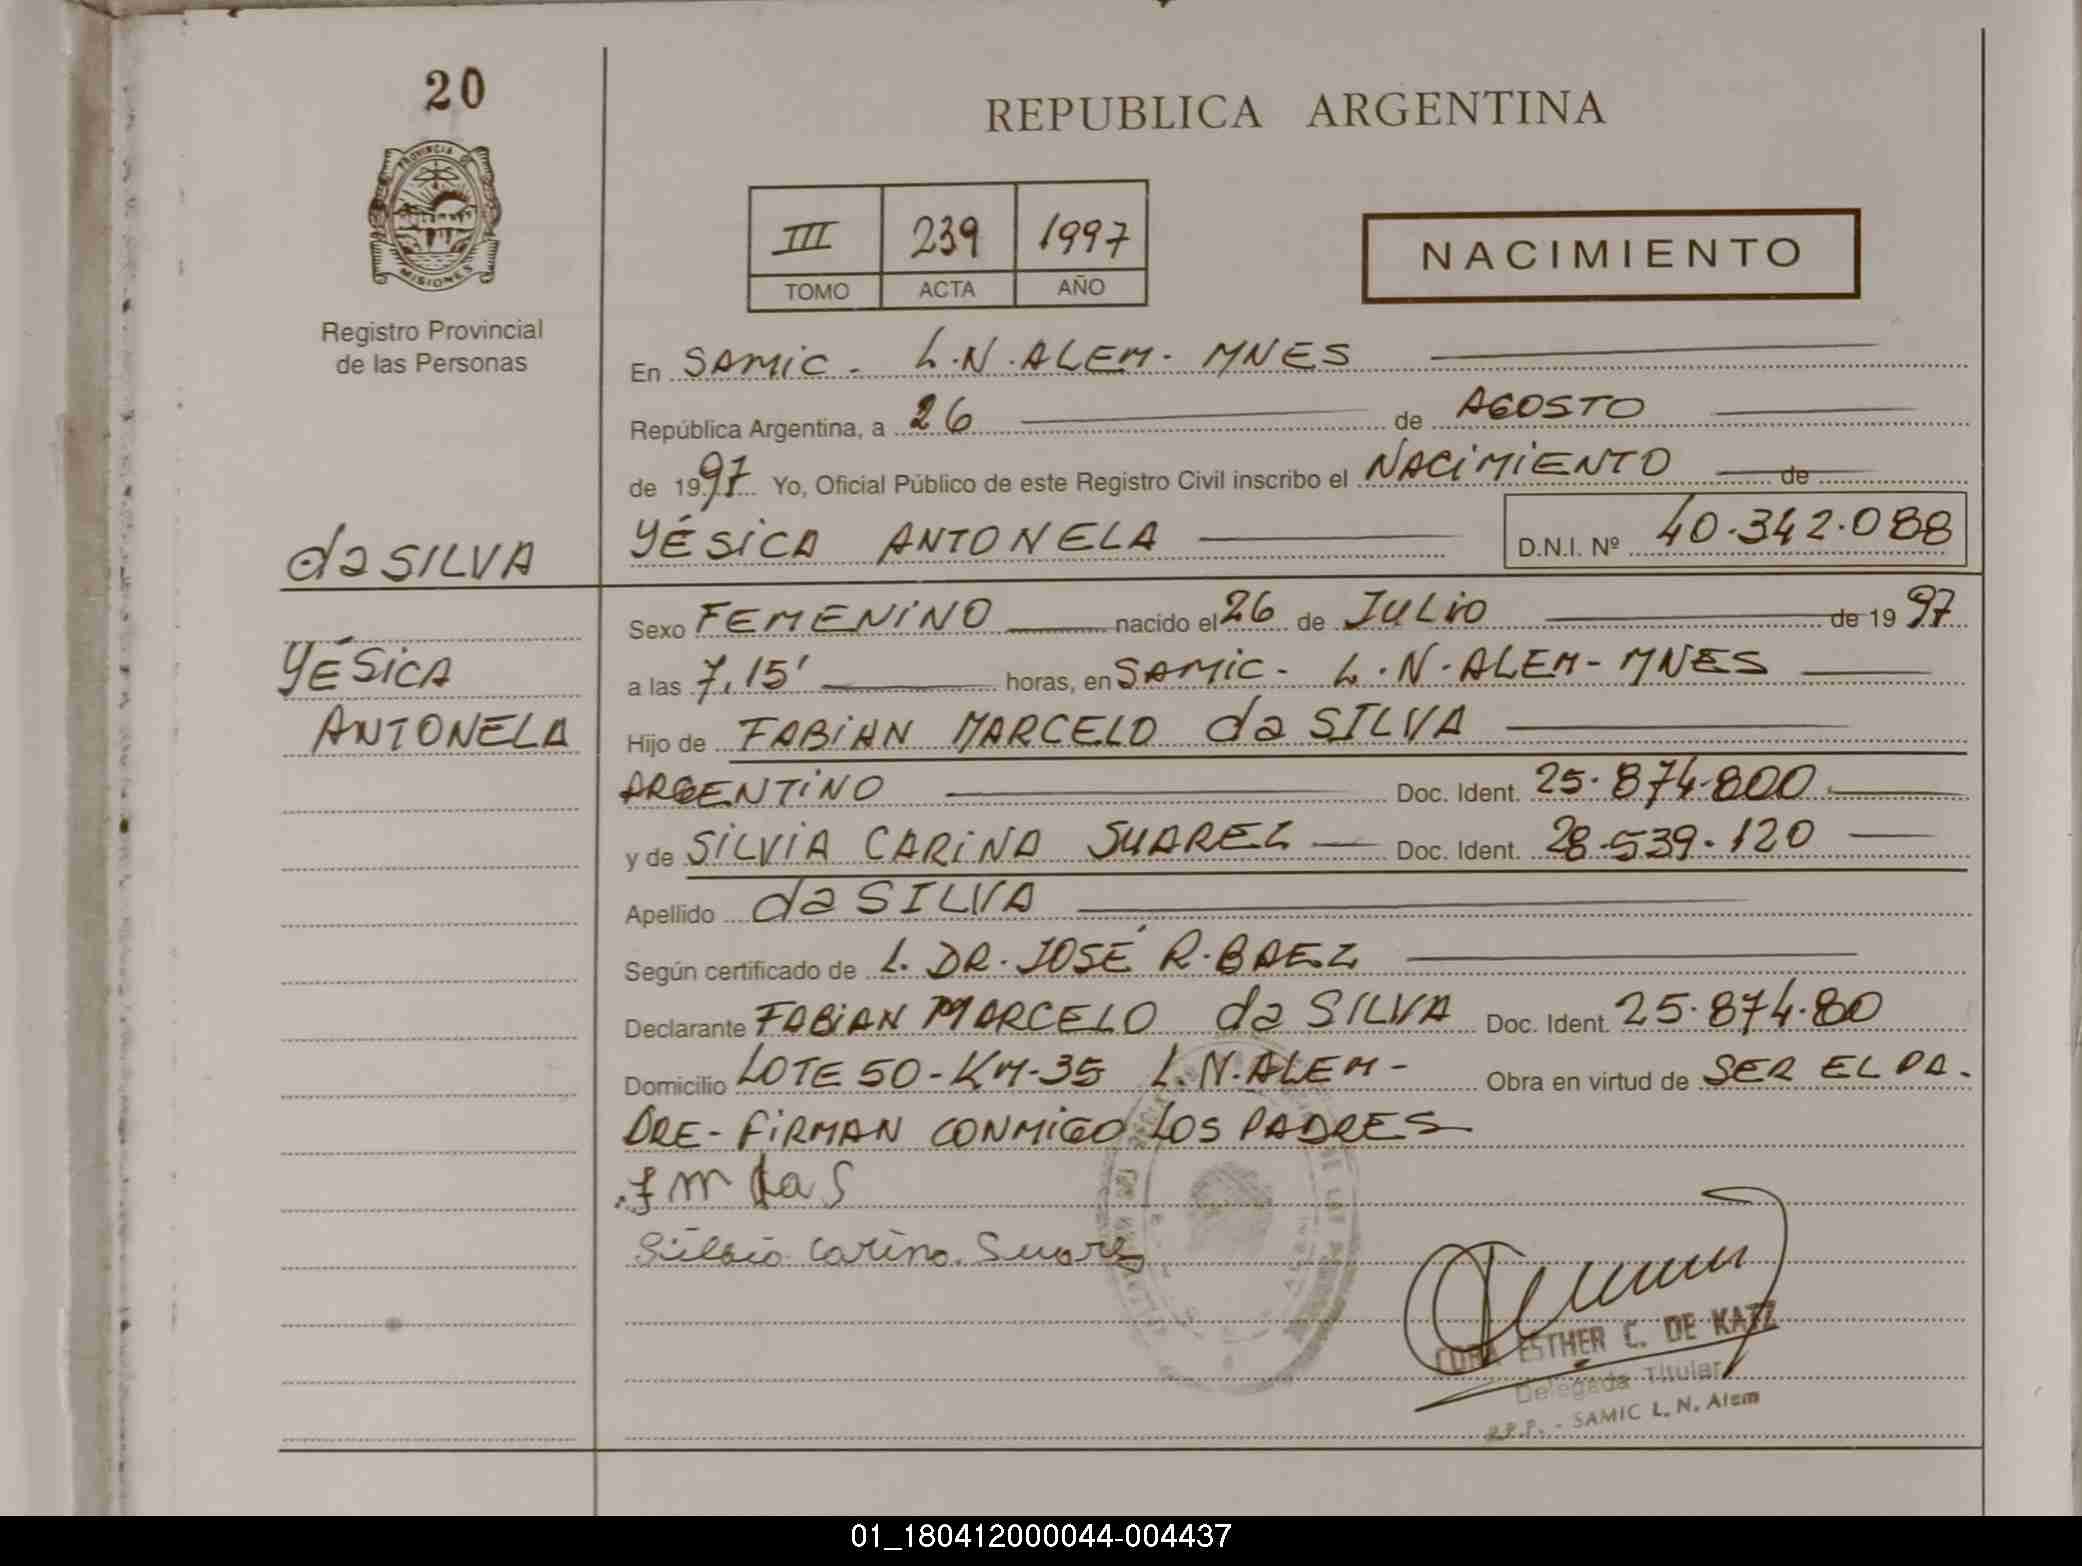 20
PROVINCIA DE
MISIONES
Registro Provincial
de las Personas
REPUBLICA ARGENTINA
III 239 1997
TOMO ACTA AÑO
NACIMIENTO
En SAMIC - L.N. ALEM - MNES
República Argentina, a 26 de AGOSTO
de 1997 Yo, Oficial Público de este Registro Civil inscribo el NACIMIENTO de
YÉSICA ANTONELA D.N.I. Nº 40.342.088
da SILVA
YÉSICA
ANTONELA
Sexo FEMENINO nacido el 26 de JULIO de 1997
a las 7,15' horas, en SAMIC - L.N. ALEM - MNES
Hijo de FABIAN MARCELO da SILVA
ARGENTINO Doc. Ident. 25.874.800
y de SILVIA CARINA SUAREZ Doc. Ident. 28.539.120
Apellido da SILVA
Según certificado de L. DR. JOSÉ R. BAEZ
Declarante FABIAN MARCELO da SILVA Doc. Ident. 25.874.80
Domicilio LOTE 50 - KM - 35 L.N. ALEM - Obra en virtud de SER EL PA-
DRE - FIRMAN CONMIGO LOS PADRES
f m da S
Silvia Carina Suarez
CORA ESTHER C. DE KATZ
Delegada Titular
R.P.P. - SAMIC L. N. Alem
01_180412000044-004437